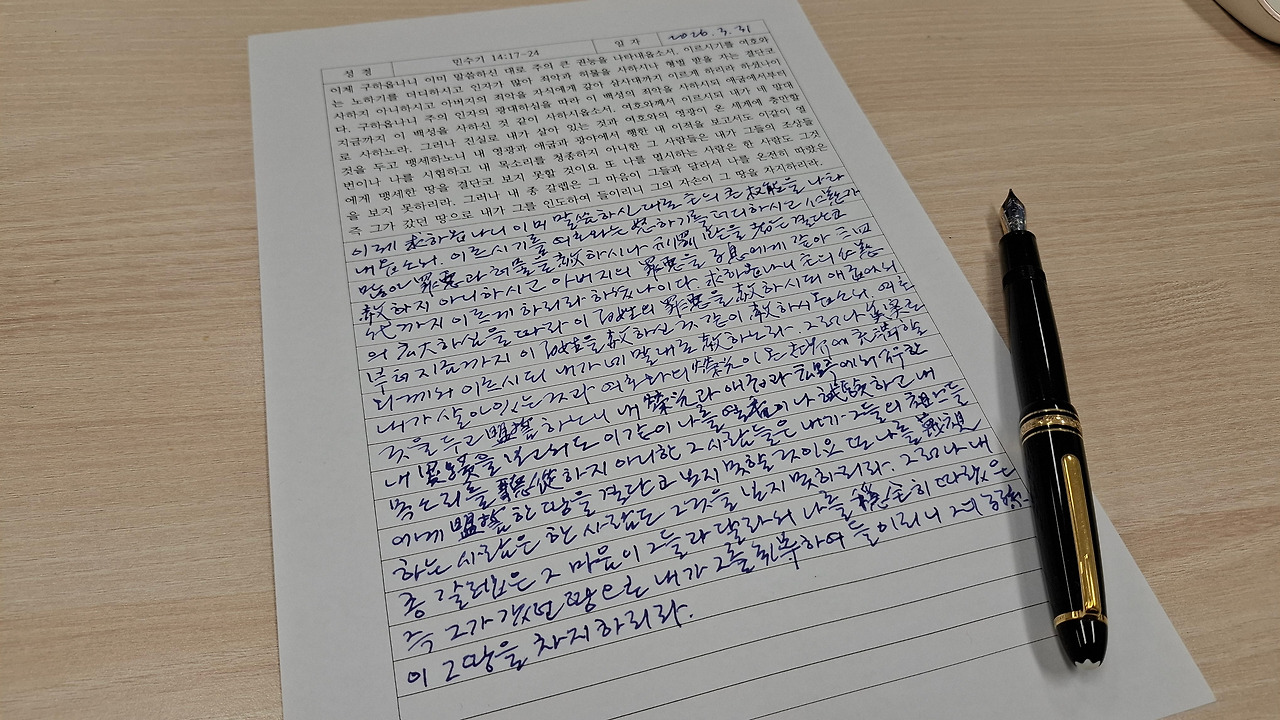 성 경 민수기 14:17-24 일 자 2026. 3. 31
이제 구하옵나니 이미 말씀하신 대로 주의 큰 권능을 나타내옵소서. 이르시기를 여호와
는 노하기를 더디하시고 인자가 많아 죄악과 허물을 사하시나 형벌 받을 자는 결단코
사하지 아니하시고 아버지의 죄악을 자식에게 갚아 삼사대까지 이르게 하리라 하셨나이
다. 구하옵나니 주의 인자의 광대하심을 따라 이 백성의 죄악을 사하시되 애굽에서부터
지금까지 이 백성을 사하신 것 같이 사하시옵소서. 여호와께서 이르시되 내가 네 말대
로 사하노라. 그러나 진실로 내가 살아 있는 것과 여호와의 영광이 온 세계에 충만할
것을 두고 맹세하노니 내 영광과 애굽과 광야에서 행한 내 이적을 보고서도 이같이 열
번이나 나를 시험하고 내 목소리를 청종하지 아니한 그 사람들은 내가 그들의 조상들
에게 맹세한 땅을 결단코 보지 못할 것이요 또 나를 멸시하는 사람은 한 사람도 그것
을 보지 못하리라. 그러나 내 종 갈렙은 그 마음이 그들과 달라서 나를 온전히 따랐은
즉 그가 갔던 땅으로 내가 그를 인도하여 들이리니 그의 자손이 그 땅을 차지하리라.
이제 求하옵나니 이미 말씀하신 대로 主의 큰 權能을 나타
내옵소서. 이르시기를 여호와는 怒하기를 더디하시고 仁慈가
많아 罪惡과 허물을 赦하시나 刑罰 받을 者는 결단코
赦하지 아니하시고 아버지의 罪惡을 子息에게 갚아 三四
代까지 이르게 하리라 하셨나이다. 求하옵나니 主의 仁慈
의 広大하심을 따라 이 百姓의 罪惡을 赦하시되 애굽에서
부터 지금까지 이 百姓을 赦하신 것 같이 赦하시옵소서. 여호
와께서 이르시되 내가 네 말대로 赦하노라. 그러나 眞実로
내가 살아있는 것과 여호와의 榮光이 온 世界에 充滿할
것을 두고 盟誓하노니 내 榮光과 애굽과 広野에서 行한
내 異蹟을 보고서도 이같이 나를 열番이나 試驗하고 내
목소리를 聽從하지 아니한 그 사람들은 내가 그들의 祖上들
에게 盟誓한 땅을 결단코 보지 못할 것이요 또 나를 蔑視
하는 사람은 한 사람도 그것을 보지 못하리라. 그러나 내
종 갈렙은 그 마음이 그들과 달라서 나를 穩全히 따랐은
즉 그가 갔던 땅으로 내가 그를 引導하여 들이리니 그의 子孫
이 그 땅을 차지하리라.